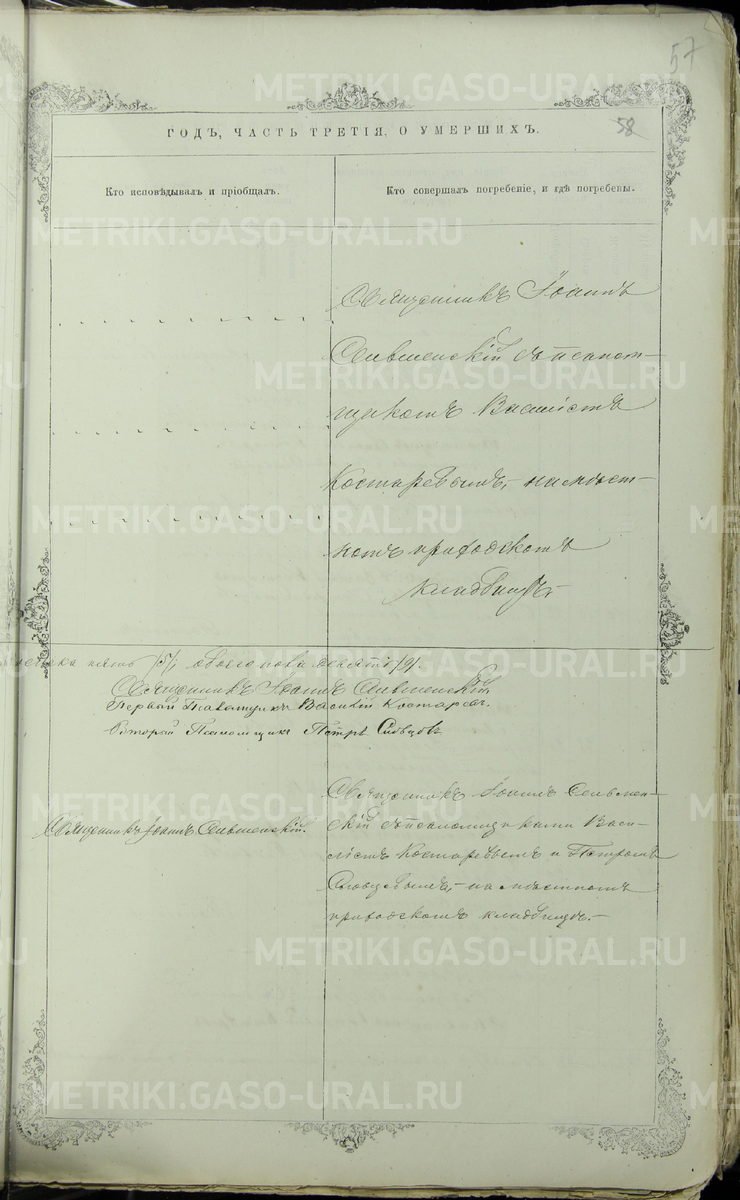 57
ГОДЪ, ЧАСТЬ ТРЕТІЯ, О УМЕРШИХЪ.
58
Кто исповѣдывалъ и пріобщалъ.
Кто совершалъ погребеніе, и гдѣ погребены.
Священникъ Іоаннъ
Сельменскій съ псалом-
щикомъ Василіемъ
Костаревымъ, на мѣст-
номъ приходскомъ
кладбищѣ.
пять /5/, обоего пола девять /9/.
Священникъ Іоаннъ Сельменскій
Первый Псаломщикъ Василій Костаревъ.
Второй Псаломщикъ Петръ Словцовъ
Священникъ Іоаннъ Сельменскій.
Священникъ Іоаннъ Сельмен-
скій съ псаломщиками Васи-
ліемъ Костаревымъ и Петромъ
Словцовымъ, на мѣстномъ
приходскомъ кладбищѣ.
METRIKI.GASO-URAL.RU